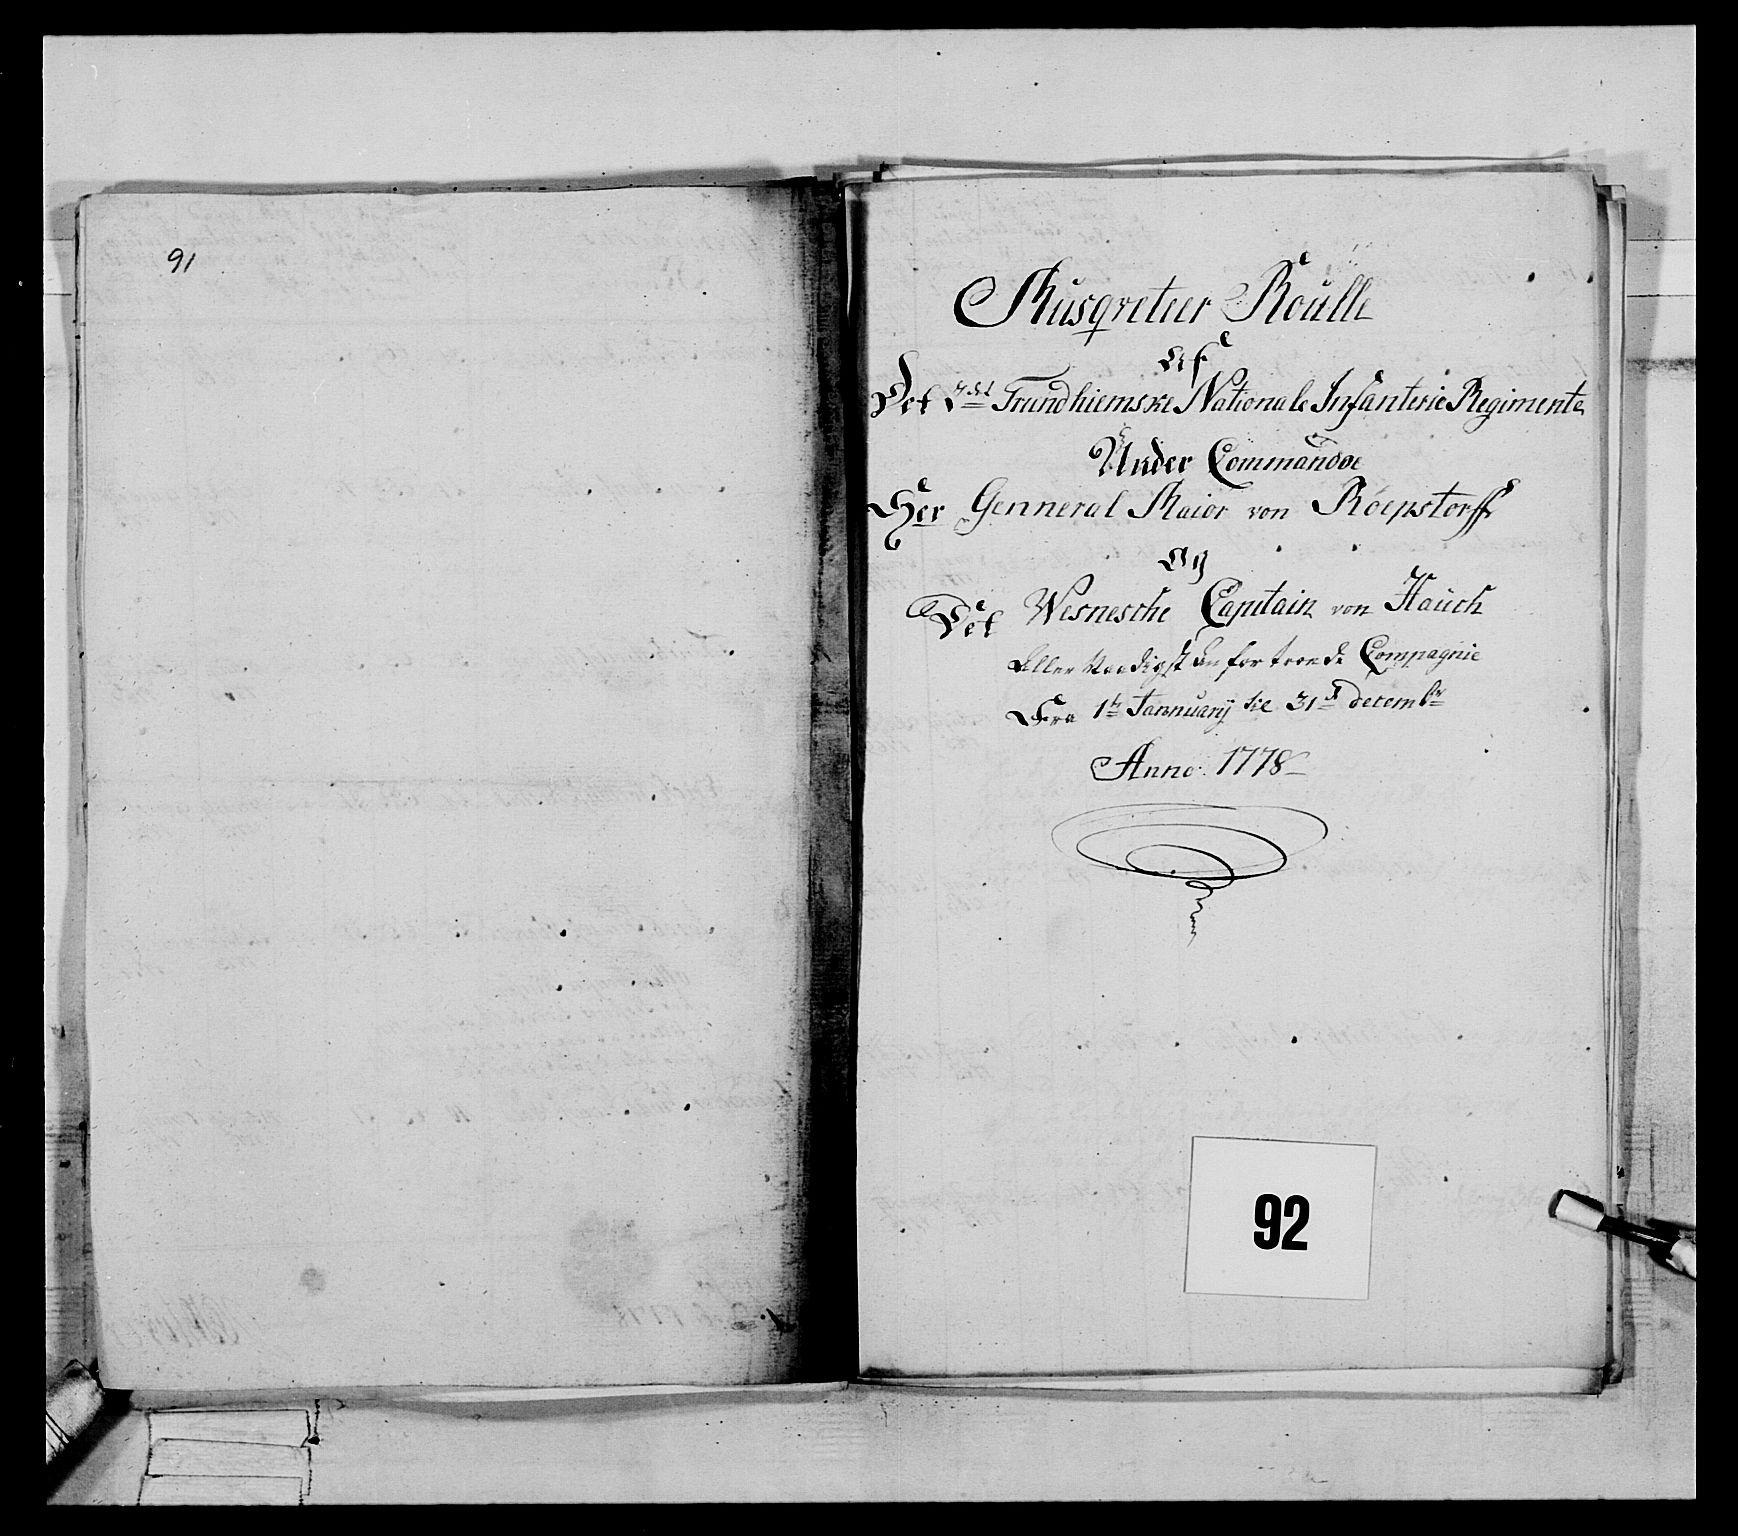 91
Musqveteer Roulle
Af
Det Trundhiemske Nationale Infanterie Regimente
Under Commandoe
Her Genneral Maior von Röepstorff
Og
Det Wesnesche Capitain von Hauch
Aller Naadigst Anfortroede Compagnie
Fra 1te Jannuarij til 31te decembr
Anno 1778
92